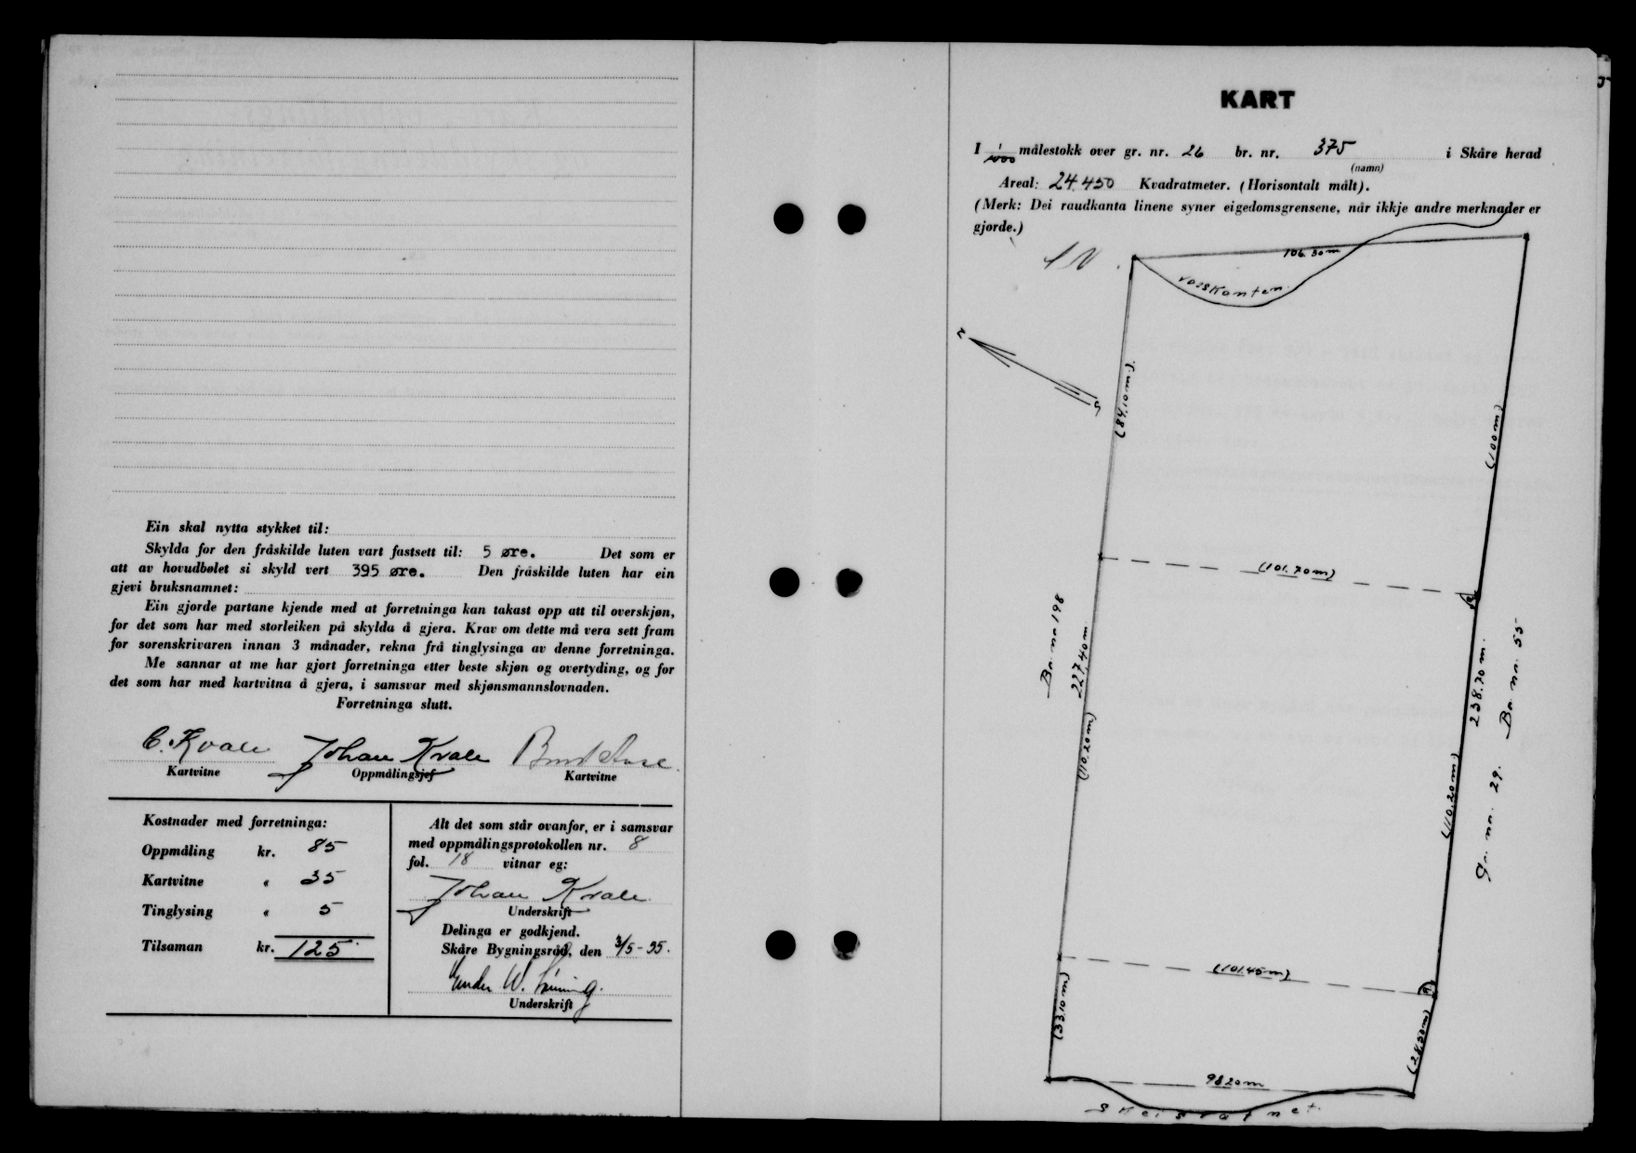 Ein skal nytta stykket til:
Skylda for den fråskilde luten vart fastsett til: 5 øre. Det som er
att av hovudbølet si skyld vert 395 øre. Den fråskilde luten har ein
gjevi bruksnamnet:
Ein gjorde partane kjende med at forretninga kan takast opp att til overskjøn,
for det som har med storleiken på skylda å gjera. Krav om dette må vera sett fram
for sorenskrivaren innan 3 månader, rekna frå tinglysinga av denne forretninga.
Me sannar at me har gjort forretninga etter beste skjøn og overtyding, og for
det som har med kartvitna å gjera, i samsvar med skjønsmannslovnaden.
Forretninga slutt.
C. Kvale Johan Kvale
Kartvitne Oppmålingsjef Kartvitne
Kostnader med forretninga:
Oppmåling kr. 85
Kartvitne " 35
Tinglysing " 5
Tilsaman kr. 125
Alt det som står ovanfor, er i samsvar
med oppmålingsprotokollen nr. 8
fol. 18 vitnar eg:
Johan Kvale
Underskrift
Delinga er godkjend.
Skåre Bygningsråd, den 3/5-55.
W.
Underskrift
KART
I 1/1000 målestokk over gr. nr. 26 br. nr. 375 i Skåre herad
(namn)
Areal: 24.450 Kvadratmeter. (Horisontalt målt).
(Merk: Dei raudkanta linene syner eigedomsgrensene, når ikkje andre merknader er
gjorde.)
106.30 m
vasskanten.
N
S
(84.10 m).
(100 m)
(101.70 m)
Br. nr 198
227,40 m
(110.20 m)
238.70 m.
Br. nr. 55
Gr. nr. 29.
(110.20 m)
(101.45 m)
(33.10 m)
(28.50 m)
98 20 m
Skeisvatnet.